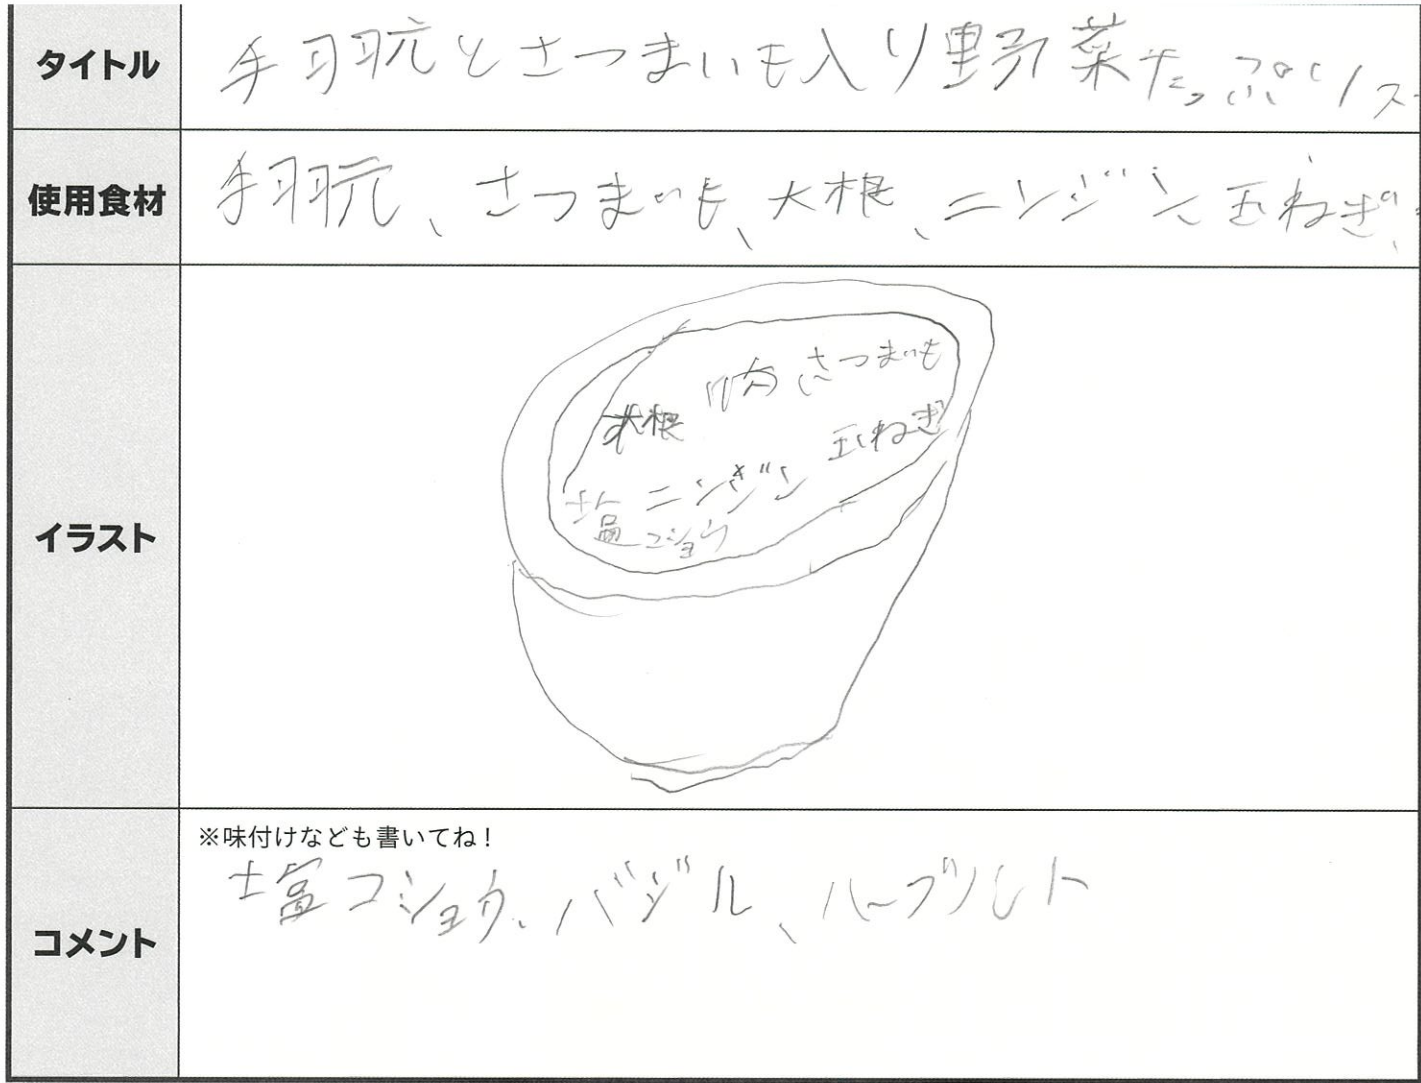 タイトル
手羽元とさつまいも入り野菜たっぷりス
使用食材
手羽元、さつまいも、大根、ニンジン玉ねぎ、
イラスト
肉 さつまいも
大根
玉ねぎ
ニンジン
塩コショウ
コメント
※味付けなども書いてね！
塩コショウ、バジル、ハーブソルト